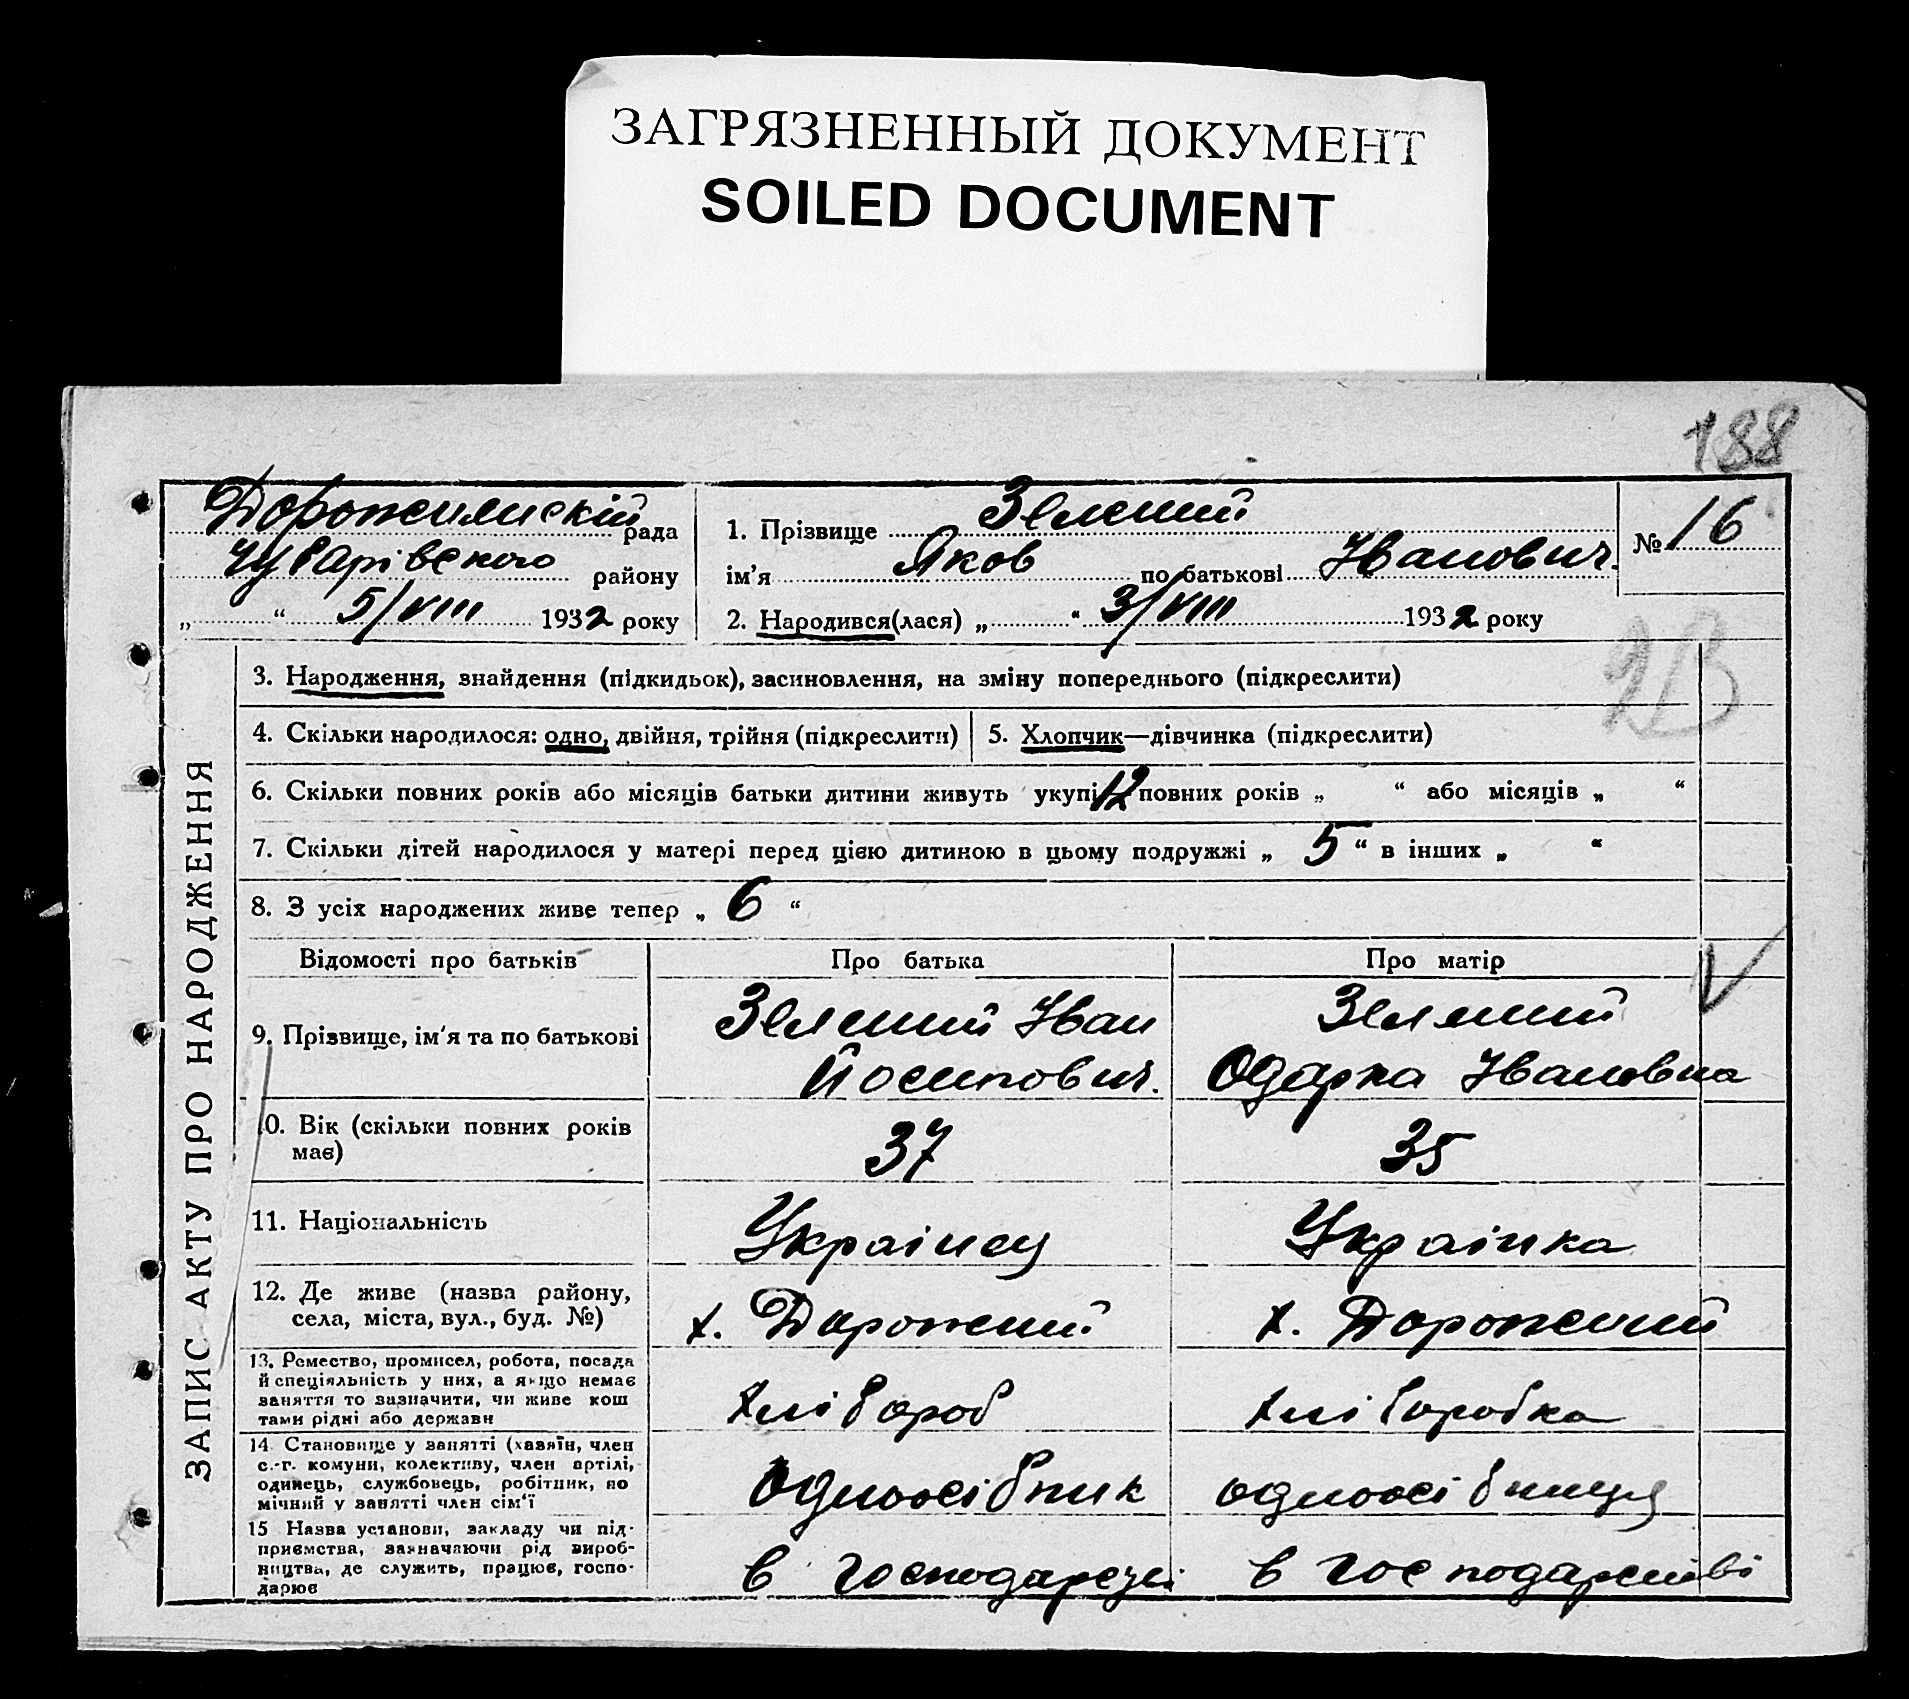 ЗАГРЯЗНЕННЫЙ ДОКУМЕНТ
SOILED DOCUMENT
188
ЗАПИС АКТУ ПРО НАРОДЖЕННЯ
рада
Чубарівського району
„ “ 5/VIII 1932 року
1. Прізвище Зелений
ім’я Яков по батькові Іванович.
2. Народився(лася) „ “ 3/VIII 1932 року
№ 16
3. Народження, знайдення (підкидьок), засиновлення, на зміну попереднього (підкреслити)
4. Скільки народилося: одно, двійня, трійня (підкреслити)
5. Хлопчик—дівчинка (підкреслити)
6. Скільки повних років або місяців батьки дитини живуть укупі 12 повних років „ “ або місяців „ “
7. Скільки дітей народилося у матері перед цією дитиною в цьому подружжі „ 5 “ в інших „ “
8. З усіх народжених живе тепер „ 6 “
Відомості про батьків Про батька Про матір
9. Прізвище, ім’я та по батькові
Зелений Іван
Йосипович.
Зелений
Одарка Івановна
10. Вік (скільки повних років
має)
37
35
11. Національність
Украінец
Украінка
12. Де живе (назва району,
села, міста, вул., буд. №)
х. Дорожний
х. Дорожений
13. Ремество, промисел, робота, посада
й спеціяльність у них, а якщо немає
заняття то зазначити, чи живе кош
тами рідні або держави
хлібороб
хліборобка
14 Становище у занятті (хазяїн, член
с.-г. комуни, колективу, член артілі,
одинець, службовець, робітник, по
мічний у занятті член сім’ї
одноосібник
одноосібниця
15 Назва установи, закладу чи під-
приємства, зазначаючи рід вироб-
ництва, де служить, працює, госпо-
дарює
в
в господарстві